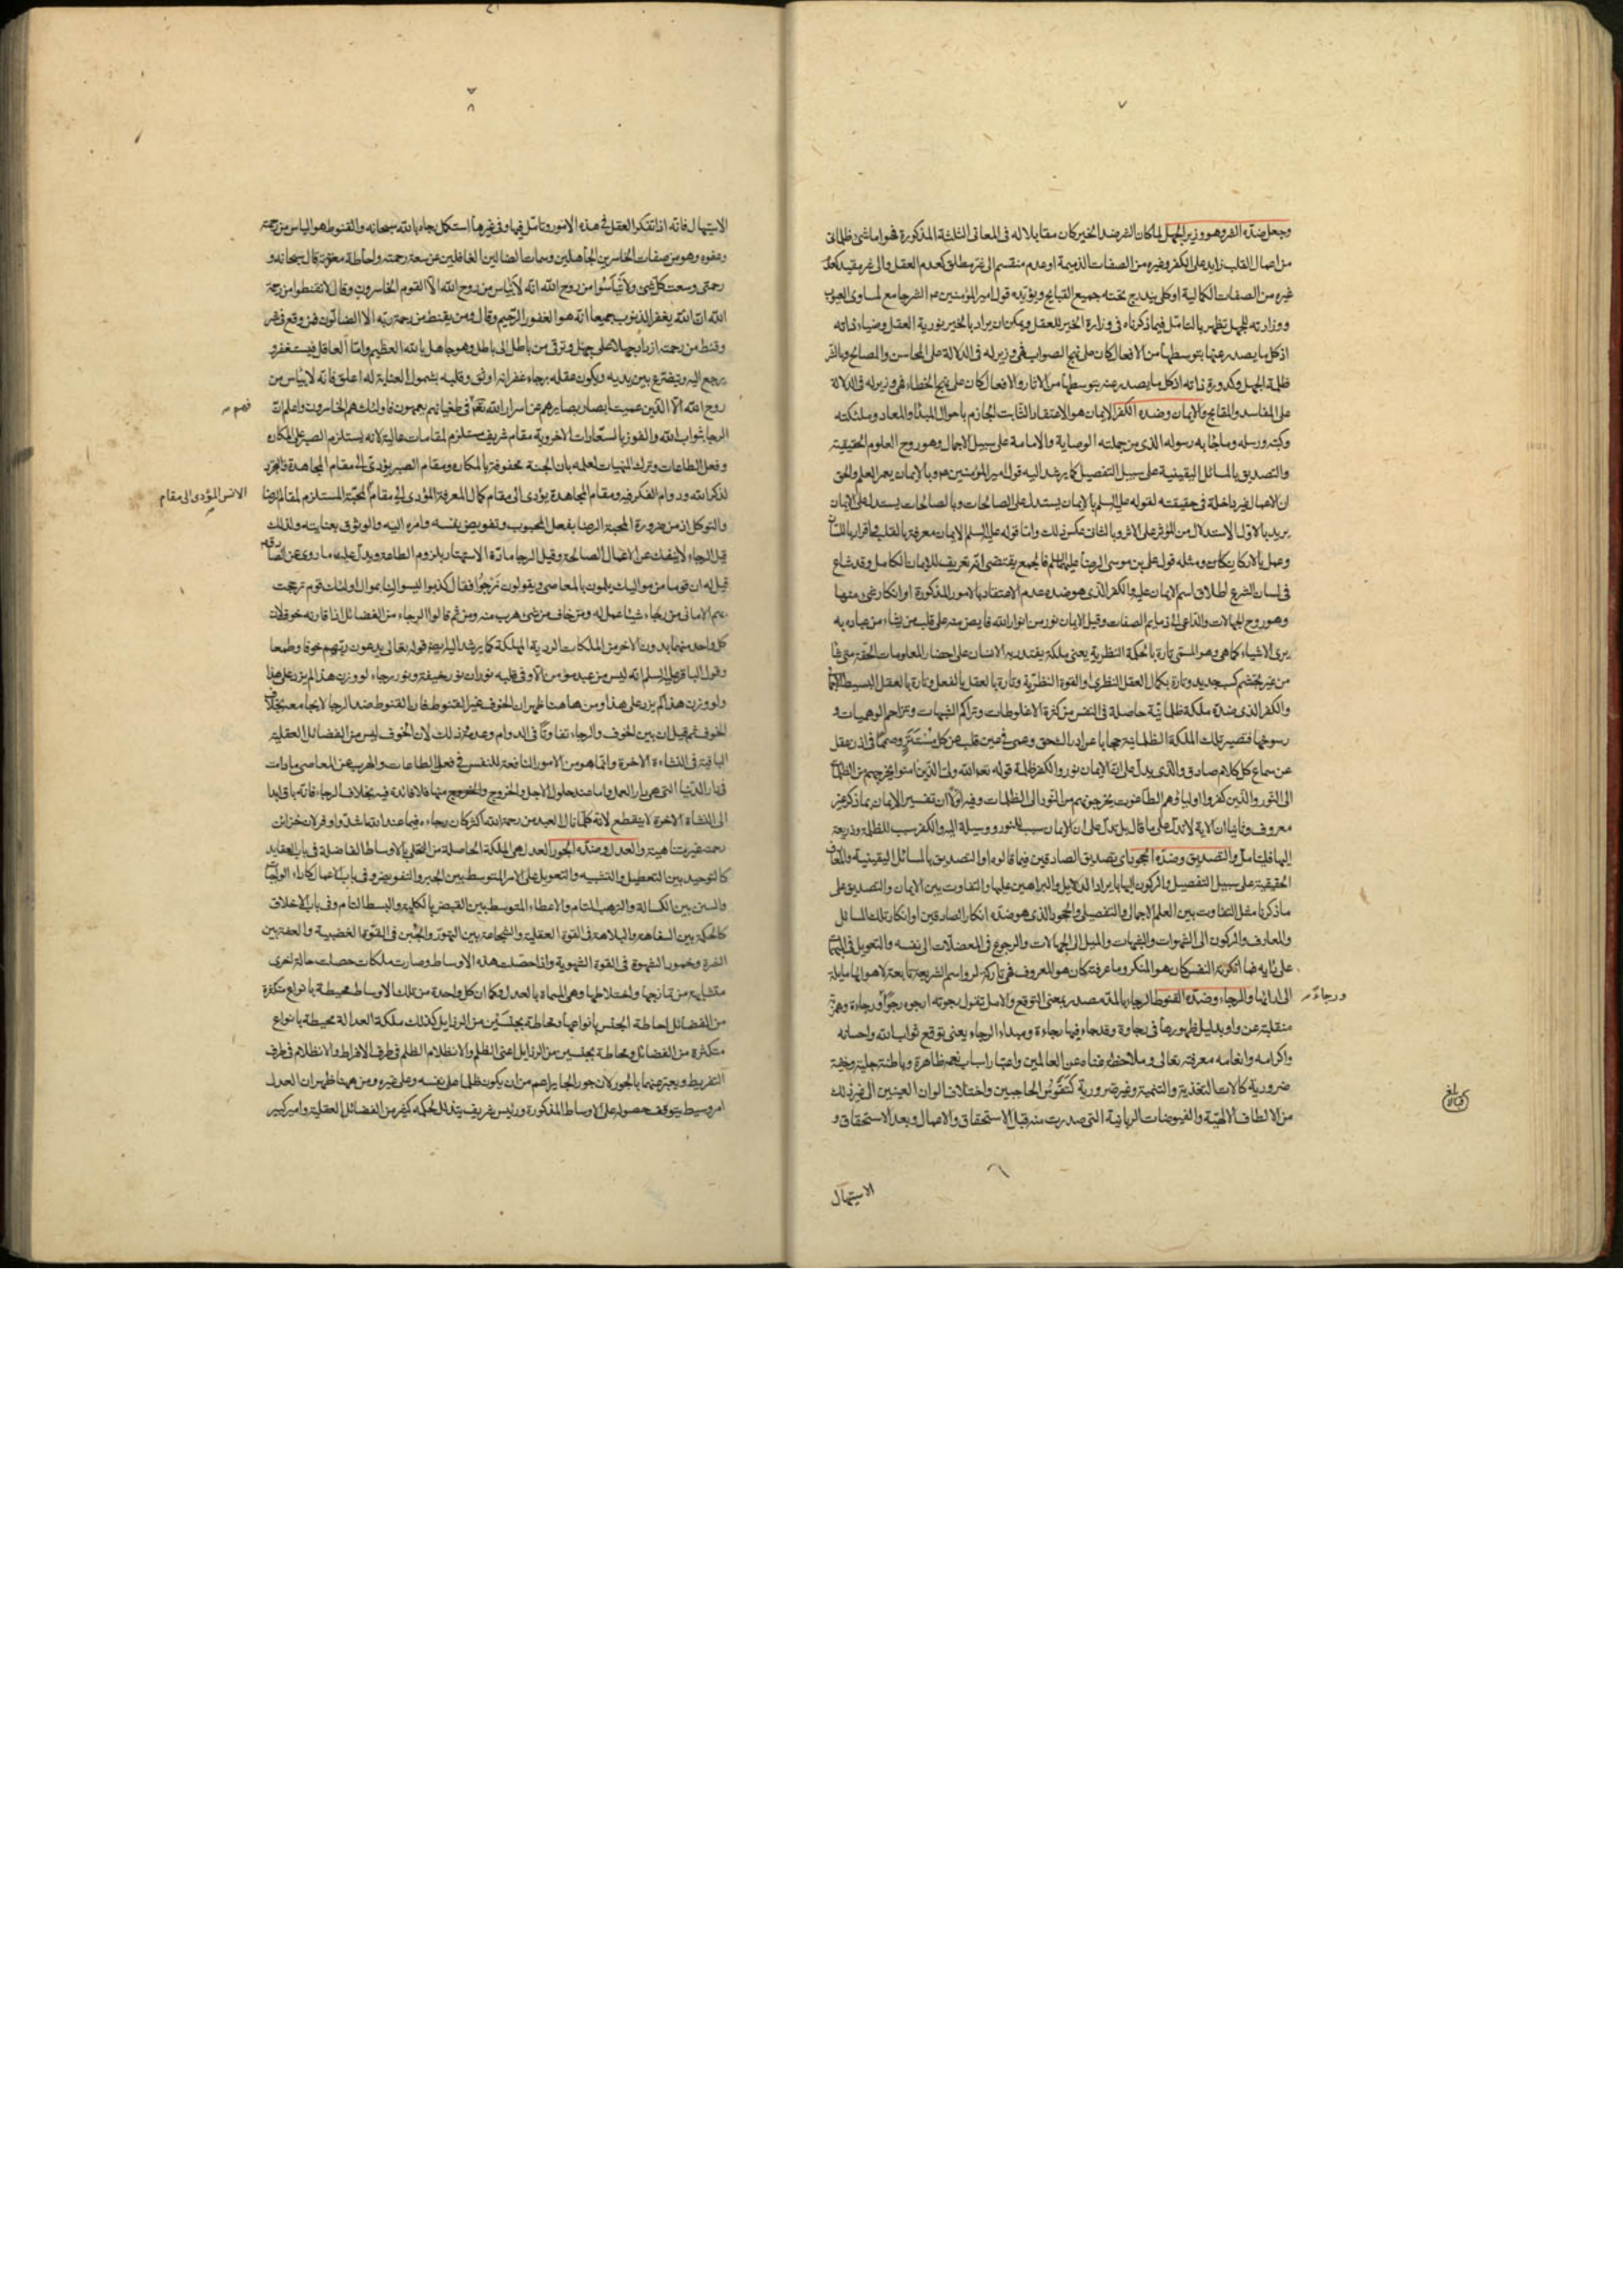 وجعل ضدّه الشر وهو وزير الجهل لما كان الشر ضد الخير كان مقابلا له فى المعانى الثلثة المذكورة فهو اما شئ ظلمانى
من اعمال القلب زايد على الكفر وغيره من الصفات الذميمة او عدم منقسم الى شر مطلق كعدم العقل والى شر مقيد كعدم
غيره من الصفات الكمالية او كلى يندرج تحته جميع القبايح ويؤيده قول امير المؤمنين عم الشر جامع لمساوى العيوب
ووزارته للجهل تظهر بالتامّل فيما ذكرناه فى وزارة الخير للعقل ويمكن ان يراد بالخير نورية العقل وضياء ذاته
اذ كل ما يصدر عنها بتوسطها من الافعال كان على نهج الصواب فهى وزير له فى الدلالة على المحاسن والمصالح وبالشر
ظلمة الجهل وكدورة ذاته اذ كل ما يصدر عنه بتوسطها من الاثار والافعال كان على نهج الخطاء فهى وزير له فى الدلالة
على المفاسد والمقابح والايمان وضده الكفر الايمان هو الاعتقاد الثابت الجازم باحوال المبدأ والمعاد وملئكته
وكتبه ورسله وما جاء به رسوله الذى من جملته الوصاية والامامة على سبيل الاجمال وهو روح العلوم الحقيقية
والتصديق بالمسائل اليقينية على سبيل التفصيل كما يرشد اليه قول امير المؤمنين عم وبالايمان يعمر العلم والحق
ان الاعمال غير داخلة فى حقيقته لقوله عليه السلم بالايمان يستدل على الصالحات وبالصالحات يستدل على الايمان
يريد بالاول الاستدلال من المؤثر على الاثر وبالثانى عكس ذلك واما قوله عليه السلم الايمان معرفة بالقلب واقرار باللسان
وعمل بالاركان ومثله قول على بن موسى الرضا عليهما السلم فالجمع يقتضى انه تعريف للايمان الكامل وقد شاع
فى لسان الشرع اطلاق اسم الايمان عليه والكفر الذى هو ضده عدم الاعتقاد بالامور المذكورة او انكار شئ منها
وهو روح الجهالات والداعى الى ذمايم الصفات وقيل الايمان نور من انوار الله فايض منه على قلب من يشاء من عباده به
يرى الاشياء كما هى وهو المسمى تارة بالحكمة النظرية يعنى ملكة يقتدر به الانسان على احضار المعلومات الحقة متى شاء
من غير تجشم كسب جديد وتارة بكمال العقل النظرى والقوة النظرية وتارة بالعقل بالفعل وتارة بالعقل البسيط
والكفر الذى ضده ملكة ظلمانية حاصلة فى النفس من كثرة الاغلوطات وتراكم الشبهات وتزاحم الوهميات و
رسوخها فتصير تلك الملكة الظلمانية حجابا عن ادراك الحق وعمى فى عين قلب عن كل وصمما فى اذن عقل
عن سماع كل كلام صادق والذى يدل على ان الايمان نور والكفر ظلمة قوله تعالى الله ولى الذين امنوا يخرجهم من الظلمات
الى النور والذين كفروا اولياؤهم الطاغوت يخرجونهم من النور الى الظلمات وفيه اولا ان تفسير الايمان بما ذكر غير
معروف وثانيا ان الاية لا تدل على ما قال بل تدل على ان الايمان سبب للنور ووسيلة اليه والكفر سبب للظلمة وذريعة
اليها فليتامل والتصديق وضده الجحود اى تصديق الصادقين فيما قالوه او التصديق بالمسائل اليقينية والمعارف
الحقيقية على سبيل التفصيل والركون اليها بايراد الدلايل والبراهين عليها والتفاوت بين الايمان والتصديق على
ما ذكرنا مثل التفاوت بين العلم الاجمالى والتفصيلى والجحود الذى هو ضده انكار الصادقين او انكار تلك المسائل
والمعارف والركون الى الشهوات والشبهات والميل الى الجهالات والرجوع فى المعضلات الى نفسه والتعويل فى المبهمات
على رايه فما انكرته النفس كان هو المنكر وما عرفته كان هو المعروف فهى تاركة لمراسم الشريعة تابعة لاهوائها مايلة
الى ارائها والرجاء وضده القنوط الرجاء بالمد مصدر بمعنى التوقع والامل تقول رجوته ارجوه رجوا ورجاءة وهمزته
ورجاء
منقلبة عن واو بدليل ظهورها فى رجاوة وقد جاء فيها رجاءة ومبداء الرجاء يعنى توقع ثواب الله واحسانه
واكرامه وانعامه معرفته تعالى وملاحظة غناه عن العالمين واعتبار اسباب نعمه ظاهرة وباطنة جلية وخفية
ضرورية كالات التغذية والتنمية وغير ضرورية كتقوس الحاجبين واختلاف الوان العينين الى غير ذلك
من الالطاف الالهية والفيوضات الربانية التى صدرت منه قبل الاستحقاق والاعمال وبعد الاستحقاق و
الاستيهال
الاستيهال فانه اذا تفكر العقل فى هذه الامور وتامل فيها وفى غيرها استكمل رجاءه بالله سبحانه والقنوط هو الياس من رحمته
وعفوه وهو من صفات الخاسرين الجاهلين وسمات الضالين الغافلين عن سعة رحمته واحاطة مغفرته قال سبحانه و
رحمتى وسعت كل شئ ولا تيأسوا من روح الله انه لا يياس من روح الله الا القوم الخاسرون وقال لا تقنطوا من رحمة
الله ان الله يغفر الذنوب جميعا انه هو الغفور الرحيم وقال ومن يقنط من رحمة ربه الا الضالون فمن وقع فى شر
وقنط من رحمته ازداد جهلا على جهل وترقى من باطل الى باطل وهو جاهل بالله العظيم واما العاقل فيستغفر و
يرجع اليه ويتضرع بين يديه ويكون عقله برجاء غفرانه اوثق وقلبه بشمول العناية له اعلق فانه لا يياس من
روح الله الا الذين عميت ابصار بصايرهم عن اسرار الله تعالى فى طغيانهم يعمهون فاولئك هم الخاسرون واعلم ان
فهم
الرجاء بثواب الله والفوز بالسعادات الاخروية مقام شريف يستلزم لمقامات عالية لانه يستلزم الصبر على المكاره
وفعل الطاعات وترك المنهيات لعلمه بان الجنة محفوفة بالمكاره ومقام الصبر يؤدى الى مقام المجاهدة والتجرد
لذكر الله ودوام الفكر فيه ومقام المجاهدة يؤدى الى مقام كمال المعرفة المؤدى الى مقام المحبة المستلزم لمقام الرضا
الانس المؤدى الى مقام
والتوكل اذ من ضرورة المحبة الرضا بفعل المحبوب وتفويض نفسه وامره اليه والوثوق بعنايته ولذلك
قيل الرجاء لا ينفك عن الاعمال الصالحة وقيل الرجا مادة الاستهتار بلزوم الطاعة ويدل عليه ما روى عن الصادق
قيل له ان قوما من مواليك يلمون بالمعاصى ويقولون نرجوا فقال كذبوا ليسوا لنا بموال اولئك قوم ترجحت
بهم الامانى من رجاء شيئا عمل له ومن خاف من شئ هرب منه ومن ثم قالوا الرجاء من الفضائل اذا قارنه خوف لان
كل واحد منهما بدون الاخر من الملكات الردية المهلكة كما يرشد اليه قوله تعالى يدعون ربهم خوفا وطمعا
وقول الباقر عليه السلم انه ليس من عبد مؤمن الا وفى قلبه نوران نور خيفة ونور رجاء لو وزن هذا لم يزد على هذا
ولو وزن هذا لم يزد على هذا ومن هاهنا ظهر ان الخوف غير القنوط فان القنوط ضد الرجاء لا يجامعه بخلاف
الخوف ثم قيل ان بين الخوف والرجاء تفاوتا فى الدوام وعدمه وذلك لان الخوف ليس من الفضائل العقلية
الباقية فى النشاءة الاخرة وانما هو من الامور النافعة للنفس فى فعل الطاعات والهرب عن المعاصى مادامت
فى دار الدنيا التى هى دار العمل واما عند حلول الاجل والخروج منها فلا فائدة فيه بخلاف الرجاء فانه باق ابدا
الى النشاة الاخرة لا ينقطع لانه كلما نال العبد من رحمة الله اكثر كان رجاءه فيما عند الله اشد واوفر لان خزائن
رحمته غير متناهية والعدل وضده الجور العدل هى الملكة الحاصلة من التحلى بالاوساط الفاضلة فى باب العقايد
كالتوحيد بين التعطيل والتشبيه والتعويل على الامر المتوسط بين الجبر والتفويض وفى باب الاعمال كاداء الواجبات
والسنن بين الكسالة والترهب التام والاعطاء المتوسط بين القبض بالكلية والبسط التام وفى باب الاخلاق
كالحكمة بين السفاهة والبلاهة فى القوة العقلية والشجاعة بين التهور والجبن فى القوة الغضبية والعفة بين
الشره وخمود الشهوة فى القوة الشهوية واذا حصلت هذه الاوساط وصارت ملكات حصلت حالة اخرى
متشابهة من تمازجها واختلاطها وهى المسماة بالعدل وكما ان كل واحدة من تلك الاوساط محيطة بانواع متكثرة
من الفضائل احاطة الجنس بانواعها ومحاطة بجنسين من الرذايل كذلك ملكة العدالة محيطة بانواع
متكثرة من الفضائل ومحاطة بجنسين من الرذايل اعنى الظلم والانظلام الظلم فى طرف الافراط والانظلام فى طرف
التفريط ويعبر عنهما بالجور لان جور الجاير اعم من ان يكون ظلما على نفسه وعلى غيره ومن ههنا ظهر ان العدل
امر وسيط يتوقف حصوله على الاوساط المذكورة ورئيس شريف كثير من الفضائل العقلية وامير كبير